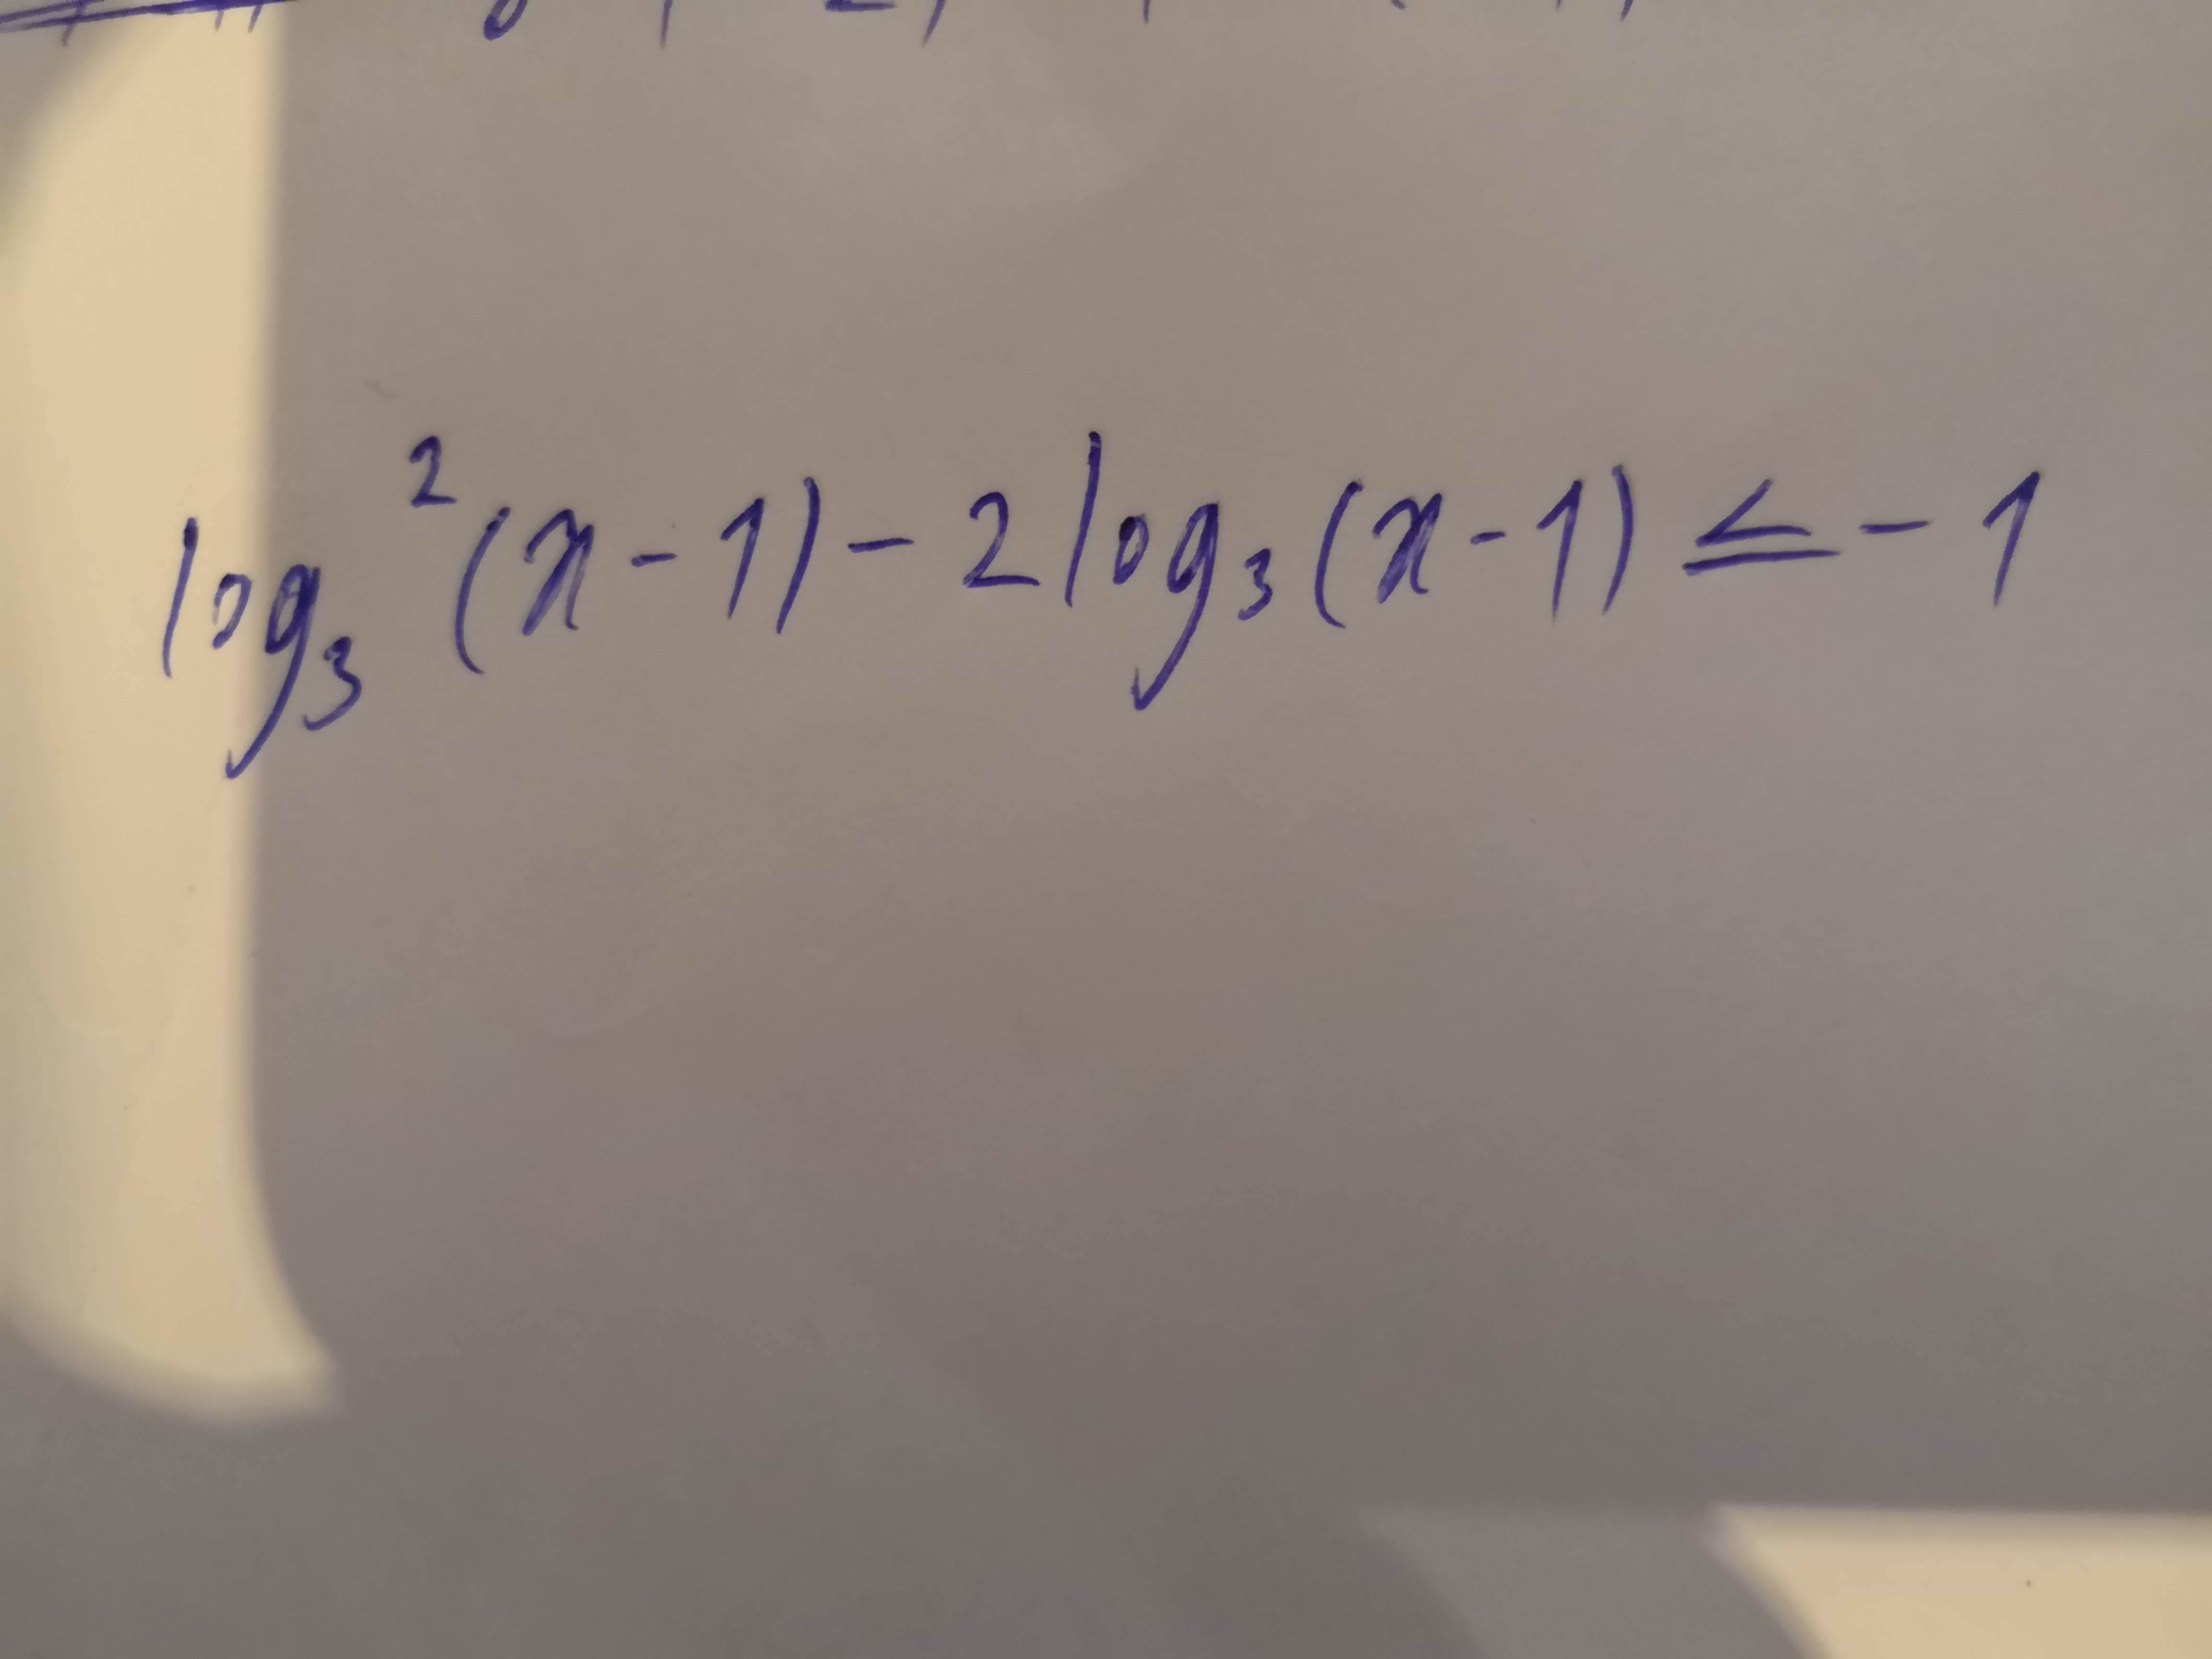 log₃²(x-1)-2log₃(x-1)≤-1